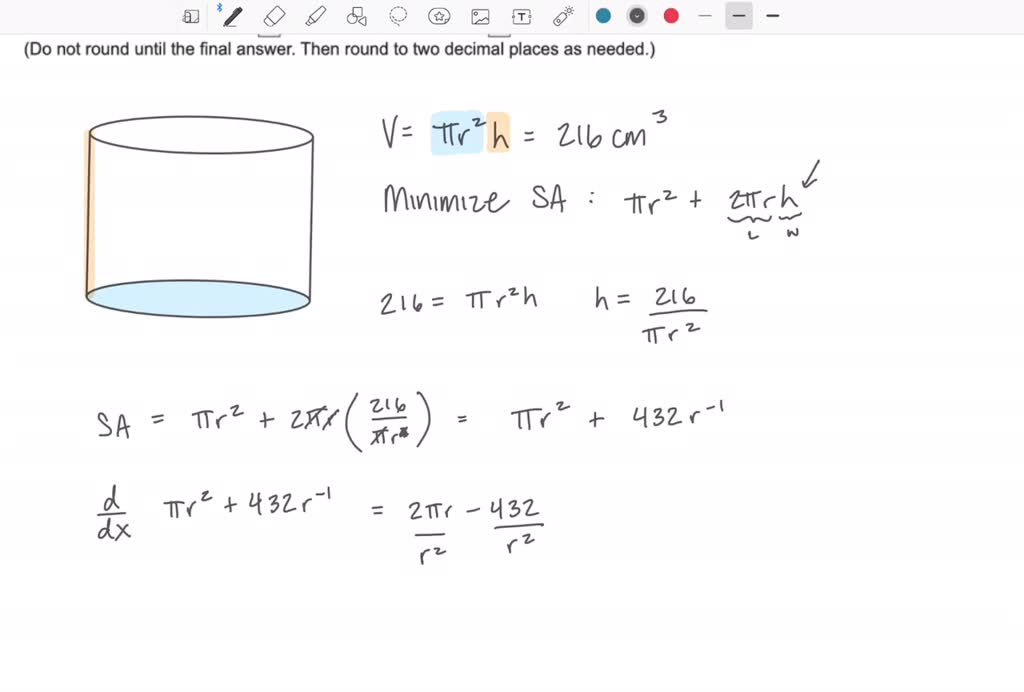 (Do not round until the final answer. Then round to two decimal places as needed.)
V= πr²h = 216 cm³
Minimize SA : πr² + 2πrh
L W
216 = πr²h h = 216/πr²
SA = πr² + 2πr(216/πr²) = πr² + 432r⁻¹
d/dx πr² + 432r⁻¹ = 2πr/r² - 432/r²